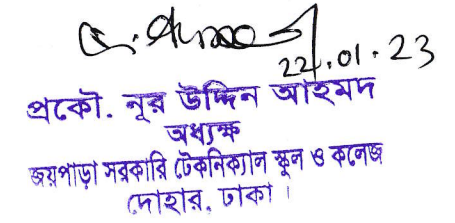 22.01.23
প্রকৌ. নূর উদ্দিন আহমদ
অধ্যক্ষ
জয়পাড়া সরকারি টেকনিক্যাল স্কুল ও কলেজ
দোহার, ঢাকা।